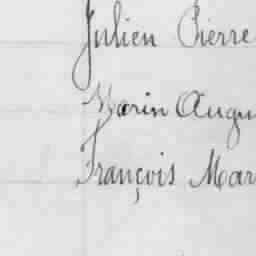 Julien Pierre
Marin Augu
François Mar